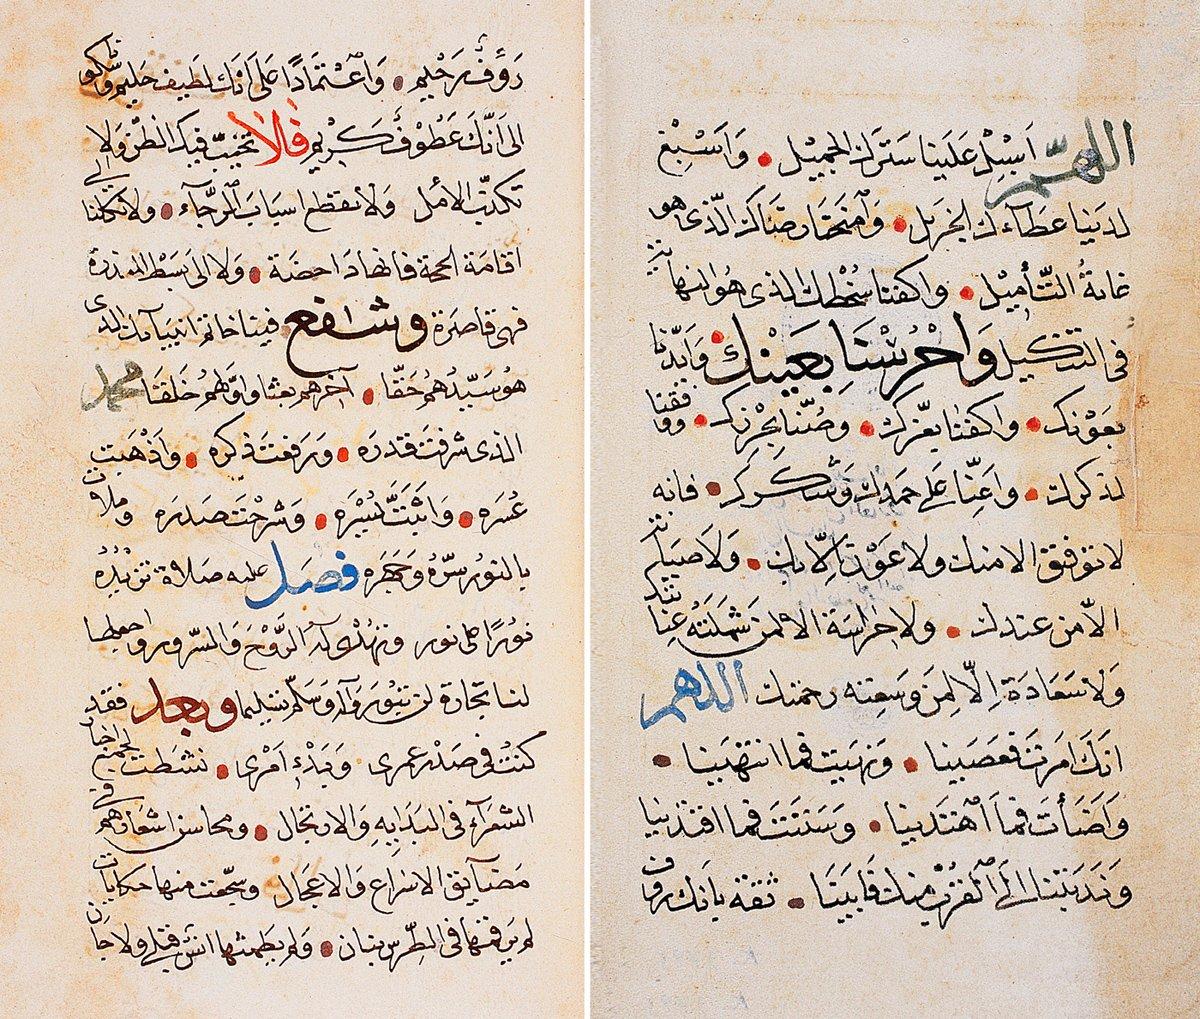 اللهم اسبل علينا سترك الجميل واسبغ
لدينا عطاءك الجزيل وامنحنا رضاك الذي هو
غاية التأميل واكفنا سخطك الذي هو النهاية
في التنكيل واحرسنا بعينك وايدنا
بعونك واكفنا بعزك وصنا بحرزك ووفقنا
لذكرك واعنا على حمدك وشكرك فانه
لا توفيق الا منك ولا عون الا بك ولا صيانة
الا من عندك ولا حراسة الا لمن شملته عنايتك
ولا سعادة الا لمن وسعته رحمتك اللهم
انك امرت فعصينا ونهيت فما انتهينا
واضأت فما اهتدينا وسننت فما اقتدينا
وندبتنا الى القرب منك فابينا ثقة بانك رؤف
رؤف رحيم واعتمادا على انك لطيف حليم وسكونا
الى انك عطوف كريم فلا تخيب فيك الظن ولا
تكذب الامل ولا تقطع اسباب الرجاء ولا تكلنا الى
اقامة الحجة فانها داحضة ولا الى بسط المعذرة
فهى قاصرة وشفع فينا خاتم انبيائك الذى
هو سيدهم حقا آخرهم بعثا واولهم خلقا محمد
الذى شرفت قدره ورفعت ذكره واذهبت
عسره واثبت يسره وشرحت صدره وملأت
بالنور سره وجهره فصل عليه صلاة تزيده
نورا على نور وتهدى له الروح والسرور واجعلها
لنا تجارة لن تبور وآله وسلم تسليما وبعد فقد
كنت فى صدر عمرى وبدء امرى نشطت لجمع اخبار
الشعراء فى البدايه والارتجال ومحاسن اشعارهم فى
مضايق الاسراع والاعجال وسمعت منها حكايات
لم يرقمها فى الطرس بنان ولم يطمثها انس قبلى ولا جان